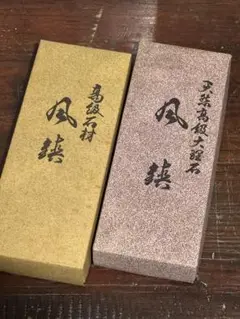 高級石材
風鎮
天然高級大理石
風鎮